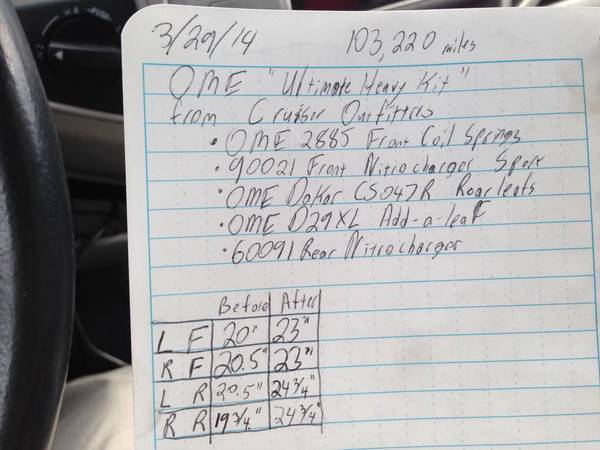 3/29/14 103,220 miles
OME "Ultimate Heavy Kit"
from Cruiser Outfitters
• OME 2885 Front Coil Springs
• 90021 Front Nitrocharger Sport
• OME Dakar CS047R Rear leafs
• OME D29XL Add-a-leaf
• 60091 Rear Nitrocharger
Before After
L F 20" 23"
R F 20.5" 23"
L R 20.5" 24 3/4"
R R 19 3/4" 24 3/4"